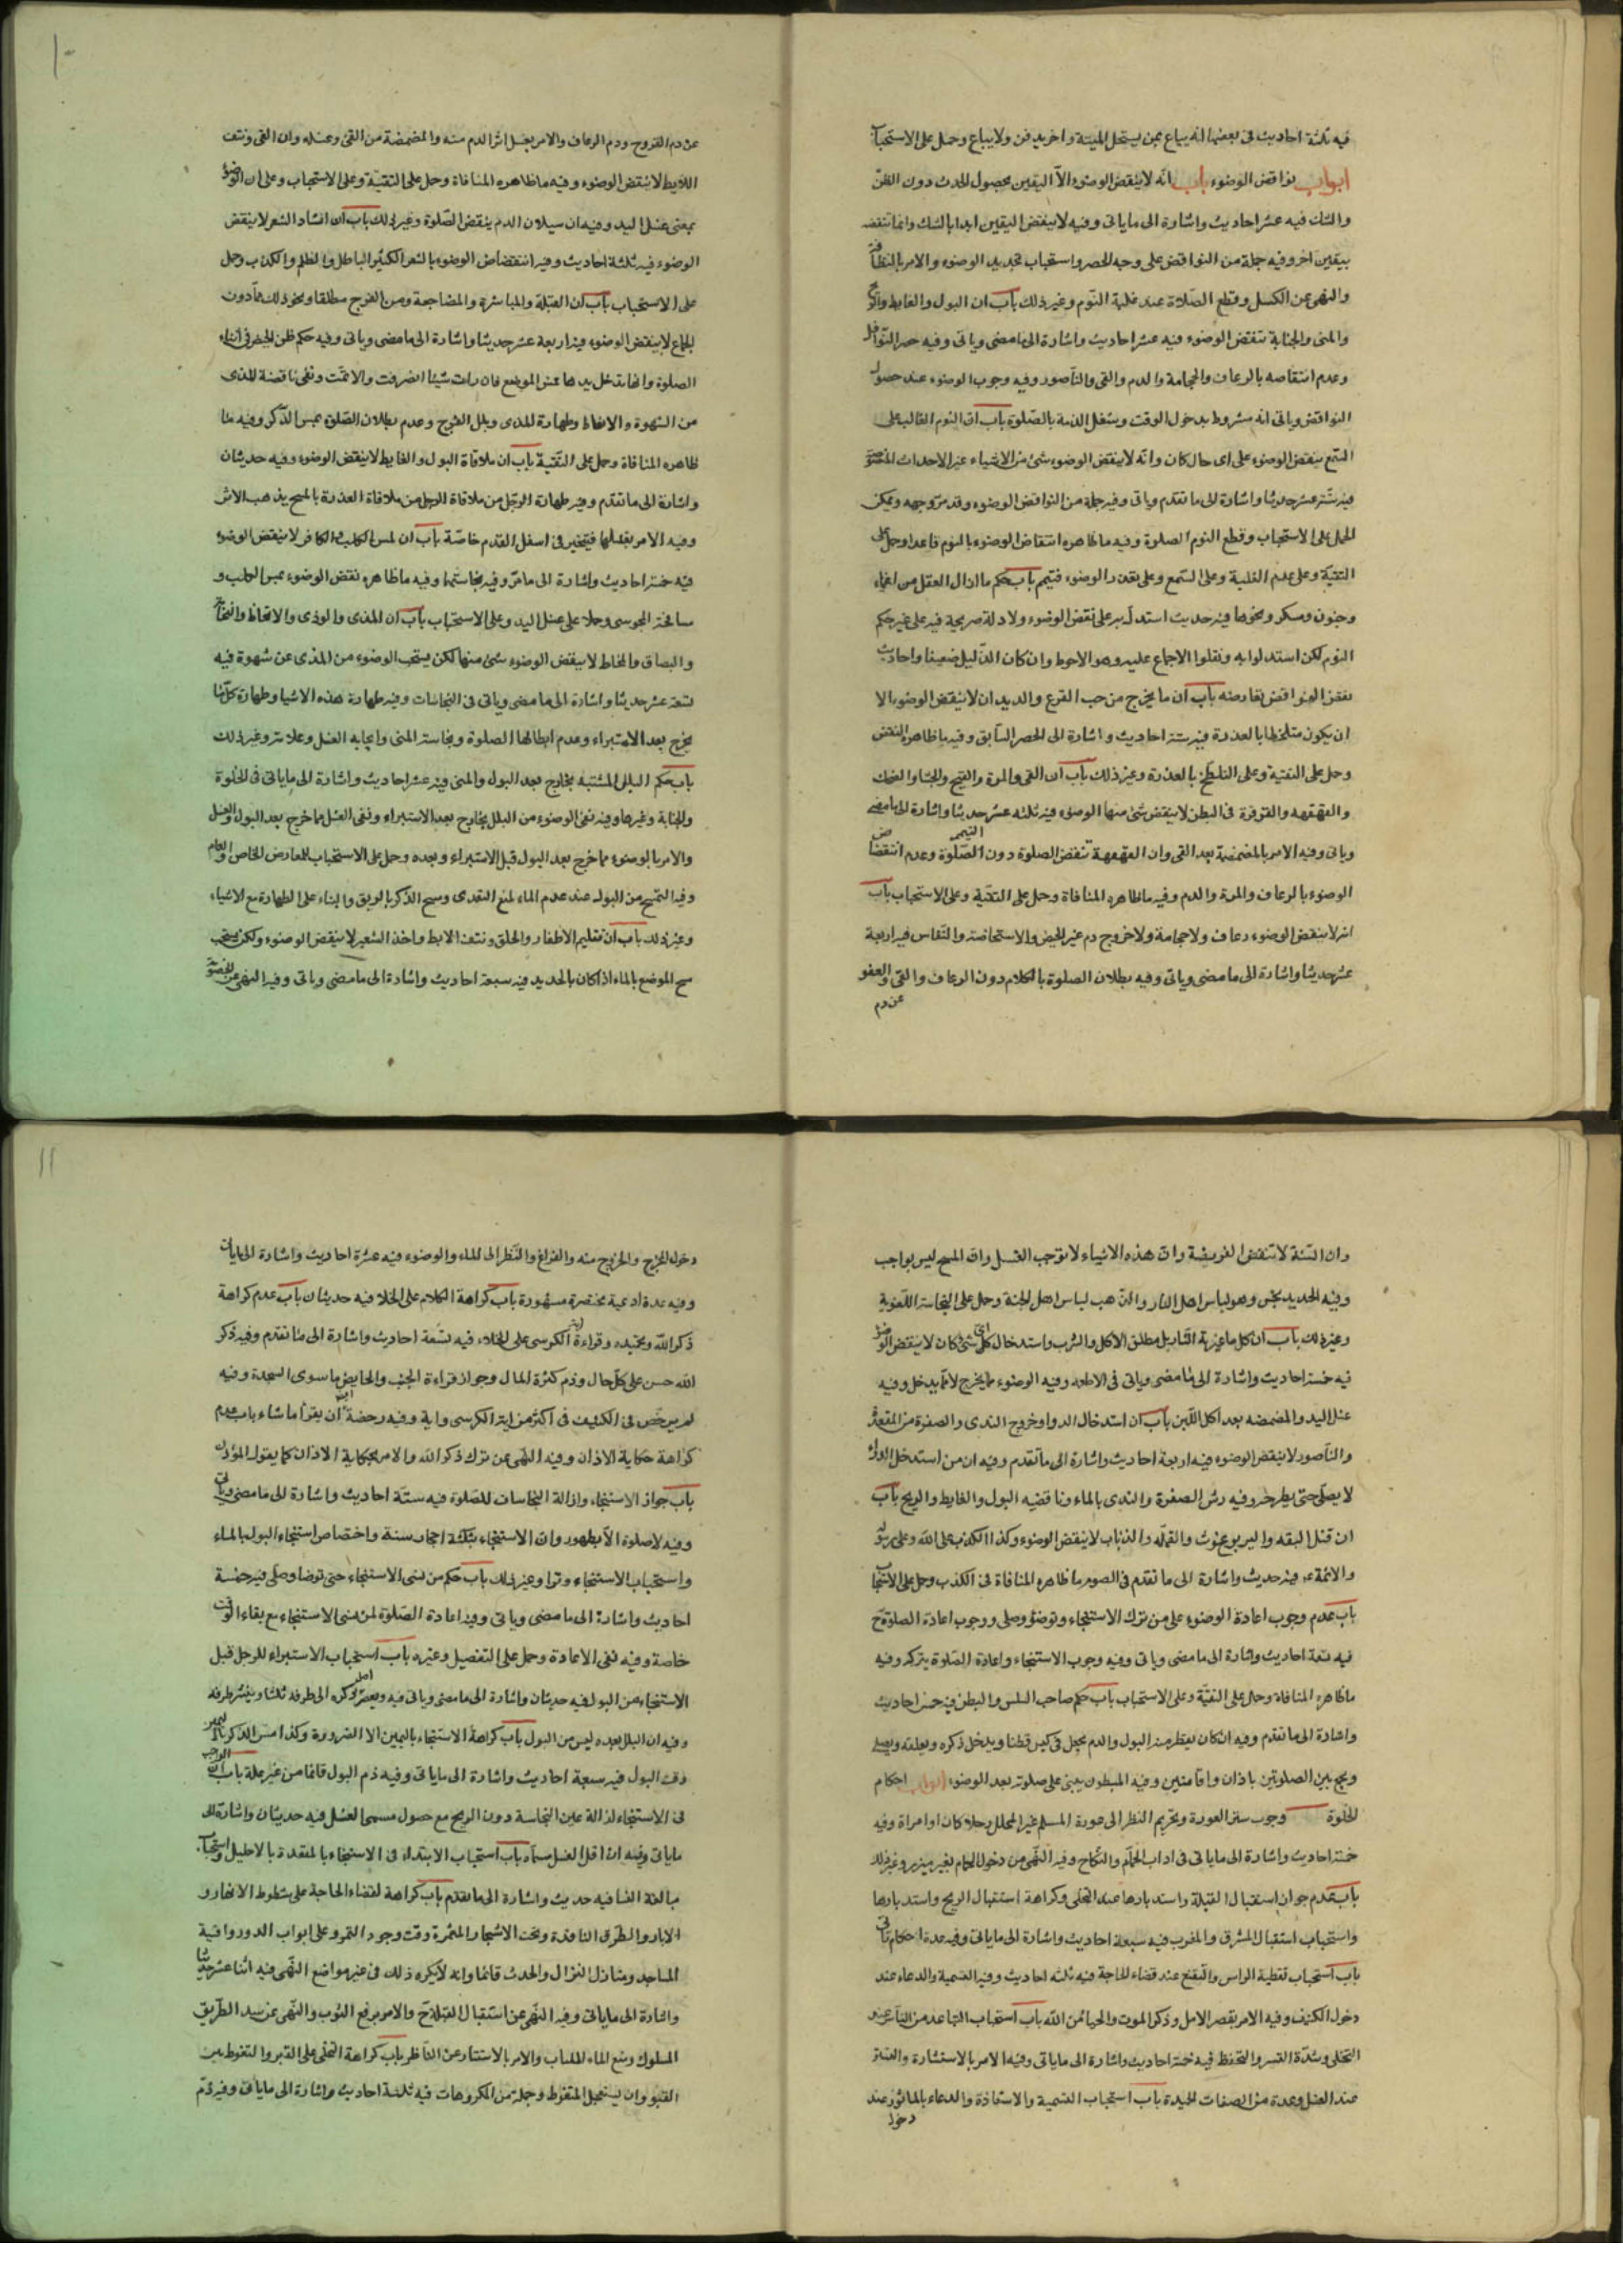 فيه ثلثة احاديث في بعضها انه يباع ممن يستحل الميتة و اخر يدفن ولا يباع وحمل على الاستحباب
ابواب نواقض الوضوء باب انّه لا ينقض الوضوء الّا اليقين بحصول الحدث دون الظنّ
والشك فيه عشر احاديث واشارة الى ما ياتى وفيه لا ينقض اليقين ابدا بالشك وانما تنقضه
بيقين آخر وفيه جملة من النواقض على وجه الحصر واستحباب تجديد الوضوء والامر بالنظافة
والنهى عن الكسل وقطع الصّلاة عند غلبة النّوم وغير ذلك باب ان البول والغايط والريح
والمنى والجنابة تنقض الوضوء فيه عشر احاديث واشارة الى ما مضى وياتى وفيه حصر النّواقض
وعدم انتقاضه بالرعاف والحجامة والدم والقى والنّاصور وفيه وجوب الوضوء عند حصول
النواقض وياتى انه مشروط بدخول الوقت وبشغل الذمة بالصّلوة باب ان النوم الغالب على
السّمع ينقض الوضوء على اى حال كان وانّه لا ينقض الوضوء شئ من الاشياء غير الاحداث المنصوصة
فيه ستّة عشر حديثا واشارة الى ما تقدم وياتى وفيه جملة من النواقض الوضوء وقد مرّ وجهه ويمكن
الحمل على الاستحباب وقطع النوم الصلوة وفيه ما ظاهره انتقاض الوضوء بالنوم قاعدا وحمل على
التقيّة وعلى عدم الغلبة وعلى السّمع وعلى تعذر الوضوء فتيمم باب حكم ما ازال العقل من اغماء
وجنون ومسكر ونحوها فيه حديث استدلّ به على نقض الوضوء ولا دلالة صريحة فيه على غير حكم
النوم لكن استدلوا به ونقلوا الاجماع عليه وهو الاحوط وان كان الدّليل ضعيفا واحاديث
بعض النواقض تعارضه باب ان ما يخرج من حب القرع والديدان لا ينقض الوضوء الا
ان يكون متلطخا بالعذرة فيه ستة احاديث واشارة الى الحصر السّابق وفيه ما ظاهره النقض
وحمل على التقية وعلى التلطّخ بالعذرة وغير ذلك باب ان القى والمرة والقيح والجشاء والضحك
والقهقهه والقرقرة فى البطن لا ينقض شئ منها الوضوء فيه ثلثه عشر حديثا واشارة الى ما مضى
وياتى وفيه الامر بالمضمضة بعد القى وان القهقهة تنقض الصلوة دون التيمم الصّلوة وعدم انتقاض
الوضوء بالرعاف والمرة والدم وفيه ما ظاهره المنافاة وحمل على التقيّة وعلى الاستحباب باب
انه لا ينقض الوضوء رعاف ولا حجامة ولا خروج دم غير الحيض والاستحاضة والنّفاس فيه اربعة
عشر حديثا واشارة الى ما مضى وياتى وفيه بطلان الصلوة بالكلام دون الرعاف والقى والعفو
عن دم
عن دم القروح ودم الرعاف والامر بغسل اثر الدم منه والمضمضة من القئ وغسله وان القى ونتف
اللابط لا ينقض الوضوء وفيه ما ظاهره المنافاة وحمل على التقيّة وعلى الاستحباب وعلى ان الوضوء
بمعنى غسل اليد وفيه ان سيلان الدم ينقض الصّلوة وغير ذلك باب ان انشاد الشعر لا ينقض
الوضوء فيه ثلثة احاديث وفيه انتقضاض الوضوء بالشعر الكثير الباطل والظلم والكذب وحمل
على الاستحباب باب ان القبلة والمباشرة والمضاجعة ومس الفرج مطلقا ونحو ذلك ممّا دون
الجماع لا ينقض الوضوء فيه اربعة عشر حديثا واشارة الى ما مضى وياتى وفيه حكم ظن الحيض فى اثناء
الصلوة وانها تدخل يدها فتمس الموضع فان رات شيئا انصرفت والا تمّت ونفى ناقضة المذى
من الشهوة والانعاظ وطهارة المذى وبلل الفرج وعدم بطلان الصّلوة بمس الذّكر وفيه ما
ظاهره المنافاة وحمل على التقيّة باب ان ملاقاة البول والغايط لا ينقض الوضوء وفيه حديثان
واشارة الى ما تقدم وفيه طهارة الرّجل من ملاقاة الرجل من ملاقاة العذرة بالمسح يذهب الاثر
وفيه الامر بغسلها فيتخير فى اسفل القدم خاصّة باب ان لمس الكلب والكافر لا ينقض الوضوء
فيه خمسة احاديث واشارة الى ما مرّ وفيه نجاستهما وفيه ما ظاهره نقض الوضوء بمس الكلب و
مصافحة المجوسى وحملا على غسل اليد وعلى الاستحباب باب ان المذى والوذى والانعاظ والنخامة
والبصاق والمخاط لا ينقض الوضوء شئ منها لكن يستحب الوضوء من المذى عن شهوة فيه
تسعة عشر حديثا واشارة الى ما مضى وياتى فى النجاسات وفيه طهارة هذه الاشيا وطهارة كلّ ما
يخرج بعد الاستبراء وعدم ابطالها الصلوة ونجاسة المنى وايجابه الغسل وعلامته وغير ذلك
باب حكم البلل المشتبه الخارج بعد البول والمنى فيه عشر احاديث واشارة الى ما ياتى فى الخلوة
والجنابة وغيرها وفيه نفى الوضوء من البلل الخارج بعد الاستبراء ونفى الغسل مما خرج بعد البول والغسل
والامر بالوضوء مما خرج بعد البول قبل الاستبراء وبعده وحمل على الاستحباب للمعارض الخاص والعام
وفيه التمسح من البول عند عدم الماء لمنع التعدى ومسح الذكر بالريق والبناء على الطهارة مع الاشتباه
وغير ذلك باب ان تقليم الاظفار والحلق ونتف الابط واخذ الشعر لا ينقض الوضوء ولكن يستحب
مسح الموضع بالماء اذا كان بالحديد فيه سبعة احاديث واشارة الى ما مضى وياتى وفيه النهى عن الخصومة
وان السّنة لا تنقض الفريضة وان هذه الاشياء لا توجب الغسل وان المسح ليس بواجب
وفيه الحديد نجس وهو لباس اهل النار والذهب لباس اهل الجنة وحمل على النجاسة اللّغوية
وغير ذلك باب ان كل ما غيرته النّار بل مطلق الاكل والشرب واستدخال اى كلّ شئ كان لا ينقض الوضوء
فيه خمسة احاديث واشارة الى ما مضى وياتى فى الاطعمه وفيه الوضوء مما يخرج لا مما يدخل وفيه
غسل اليد والمضمضه بعد اكل اللّبن باب ان استدخال الدوا وخروج الندى والصفرة من المقعدة
والنّاصور لا ينقض الوضوء فيه اربعة احاديث واشارة الى ما تقدم وفيه ان من استدخل الدواء
لا يصلّى حتى يطرحه وفيه رش الصفرة والندى بالماء وناقضيه البول والغايط والريح باب
ان قتل البقه والبرغوث والقمله والذباب لا ينقض الوضوء وكذا الكذب على الله وعلى رسوله
والائمة ع فيه حديث واشارة الى ما تقدم فى الصوم ما ظاهره المنافاة فى الكذب وحمل على الاستحباب
باب عدم وجوب اعادة الوضوء على من ترك الاستنجاء وتوضؤ وصلى ووجوب اعادة الصلوة ح
فيه تسعة احاديث واشارة الى ما مضى وياتى وفيه وجوب الاستنجاء واعادة الصّلوة بتركه وفيه
ما ظاهره المنافاة وحمل على التقيّة وعلى الاستحباب باب حكم صاحب السلس والبطن فيه خمس احاديث
واشارة الى ما تقدم وفيه ان كان يقطر منه البول والدم يجعل فى كيس قطنا ويدخل ذكره ويعلقه ويصلى
ويجمع بين الصلوتين باذان واقامتين وفيه المبطون يبنى على صلوته بعد الوضوء ابواب احكام
الخلوة وجوب ستر العورة وتحريم النظر الى عورة المسلم غير المحلل رجلا كان او امراة وفيه
خمسة احاديث واشارة الى ما ياتى فى اداب الحمّام والنكاح وفيه النّهى من دخول الحمام بغير ميزر وغير ذلك
باب عدم جواز استقبال القبلة واستدبارها عند التخلى وكراهة استقبال الريح واستدبارها
واستحباب استقبال المشرق والمغرب فيه سبعة احاديث واشارة الى ما ياتى وفيه عدة احكام تاتى
باب استحباب تغطية الراس والتقنع عند قضاء الحاجة فيه ثلثه احاديث وفيه التسمية والدعاء عند
دخول الكنيف وفيه الامر بقصر الامل وذكر الموت والحياء من الله باب استحباب التباعد من النّاس عند
التخلى وشدّة التستر والتحفظ فيه خمسة احاديث واشارة الى ما ياتى وفيه الامر بالاستشارة والتستر
عند الغسل وعدة من الصفات الحميدة باب استحباب التسمية والاستعاذة والدعاء بالماثور عند
دخول
دخول المخرج والخروج منه والفراغ والنّظر الى الماء والوضوء فيه عشرة احاديث واشارة الى ما ياتى
وفيه عدة ادعية مختصرة مشهورة باب كراهة الكلام على الخلا فيه حديثان باب عدم كراهة
ذكر اللّه وتحميده وقراءة اية الكرسى على الخلاء فيه تسعة احاديث واشارة الى ما تقدم وفيه ذكر
اللّه حسن على كل حال وذم كثرة المال وجواز قراءة الجنب والحايض ما سوى السجدة وفيه
لم يرخص فى الكنيف فى اكثر من اية الكرسى واية وفيه رخصة ان يقرا ما شاء باب عدم
كراهة حكاية الاذان وفيه النّهى عن ترك ذكر اللّه والامر بحكاية الاذان كما يقول المؤذن
باب جواز الاستنجاء وازالة النجاسات للصلوة فيه ستّة احاديث واشارة الى ما مضى وياتى
وفيه لا صلوة الّا بطهور وان الاستنجاء بثلثة احجار سنة واختصاص استنجاء البول بالماء
واستحباب الاستنجاء وترا وغير ذلك باب حكم من نسى الاستنجاء حتى توضا وصلى فيه خمسة
احاديث واشارة الى ما مضى وياتى وفيه اعادة الصّلوة لمن نسى الاستنجاء مع بقاء الوقت
خاصة وفيه نفى الاعادة وحمل على التفصيل وغيره باب استحباب الاستبراء للرجل قبل
الاستنجاء من البول فيه حديثان واشارة الى ما مضى وياتى فيه ويعصر اصل ذكره الى طرفه ثلثا وينتر طرفه
وفيه ان البلل بعده ليس من البول باب كراهة الاستنجاء باليمين الا لضرورة وكذا مس الذكر باليمين
وقت البول فيه سبعة احاديث واشارة الى ما ياتى وفيه ذم البول قائما من غير علة باب ان الواجب
فى الاستنجاء ازالة عين النجاسة دون الريح مع حصول مسمى الغسل فيه حديثان واشارة الى
ما ياتى وفيه ان اقل الغسل مسمّاه باب استحباب الابتداء فى الاستنجاء بالمقعدة ثم بالاحليل واستحباب
مبالغة النسا فيه حديث واشارة الى ما تقدم باب كراهة لقضاء الحاجة على شطوط الانهار و
الابار والطرق النافذة وتحت الاشجار المثمرة وقت وجود الثمر وعلى ابواب الدور وافنية
المساجد ومنازل النزال والحدث قائما وانه لا يكره ذلك فى غير مواضع النّهى فيه اثنا عشر حديثا
واشارة الى ما ياتى وفيه النّهى عن استقبال القبلة ح والامر برفع الثوب والنّهى عن سد الطّريق
المسلوك ومنع الماء المنتاب والامر بالاستتار عن النّاظر باب كراهة التخلى على القبر والتغوط بين
القبور وان يستعجل المتغوط وجملة من المكروهات فيه ثلثة احاديث واشارة الى ما ياتى وفيه ذمّ
١٠
١١